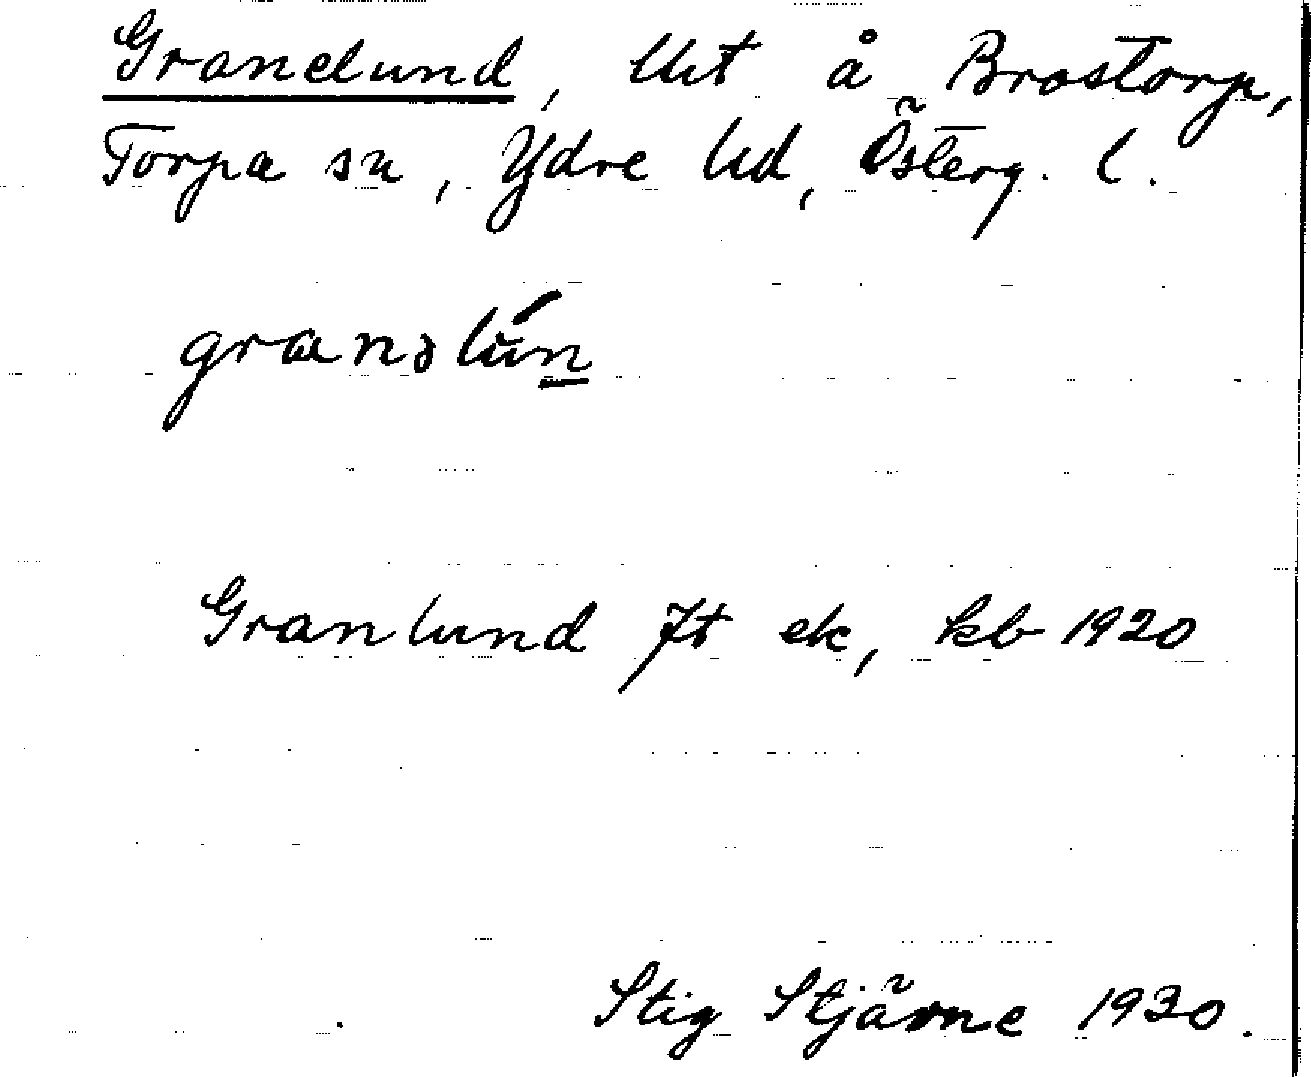 Granelund, lht å Brostorp,
Torpa sn, Ydre hd, Österg. l.
granəlún
Granlund Jt ek, kb 1920
Stig Stjärne 1930.